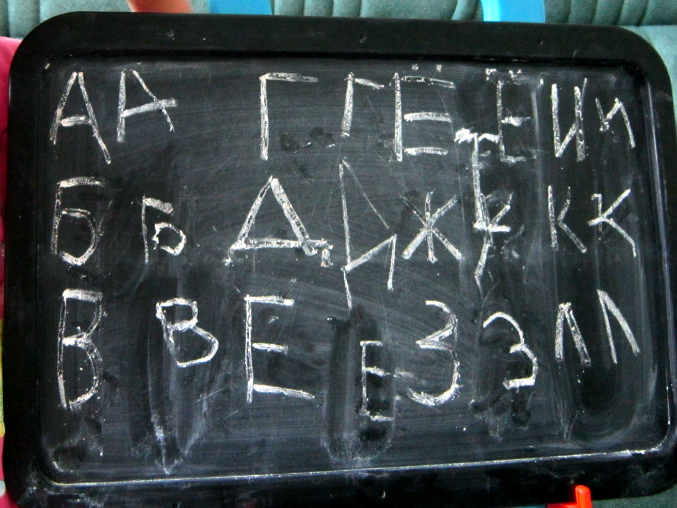 А А Г Г Ё Ё И И
Б Б Д Д Ж Ж К К
В В Е Е З З Л Л